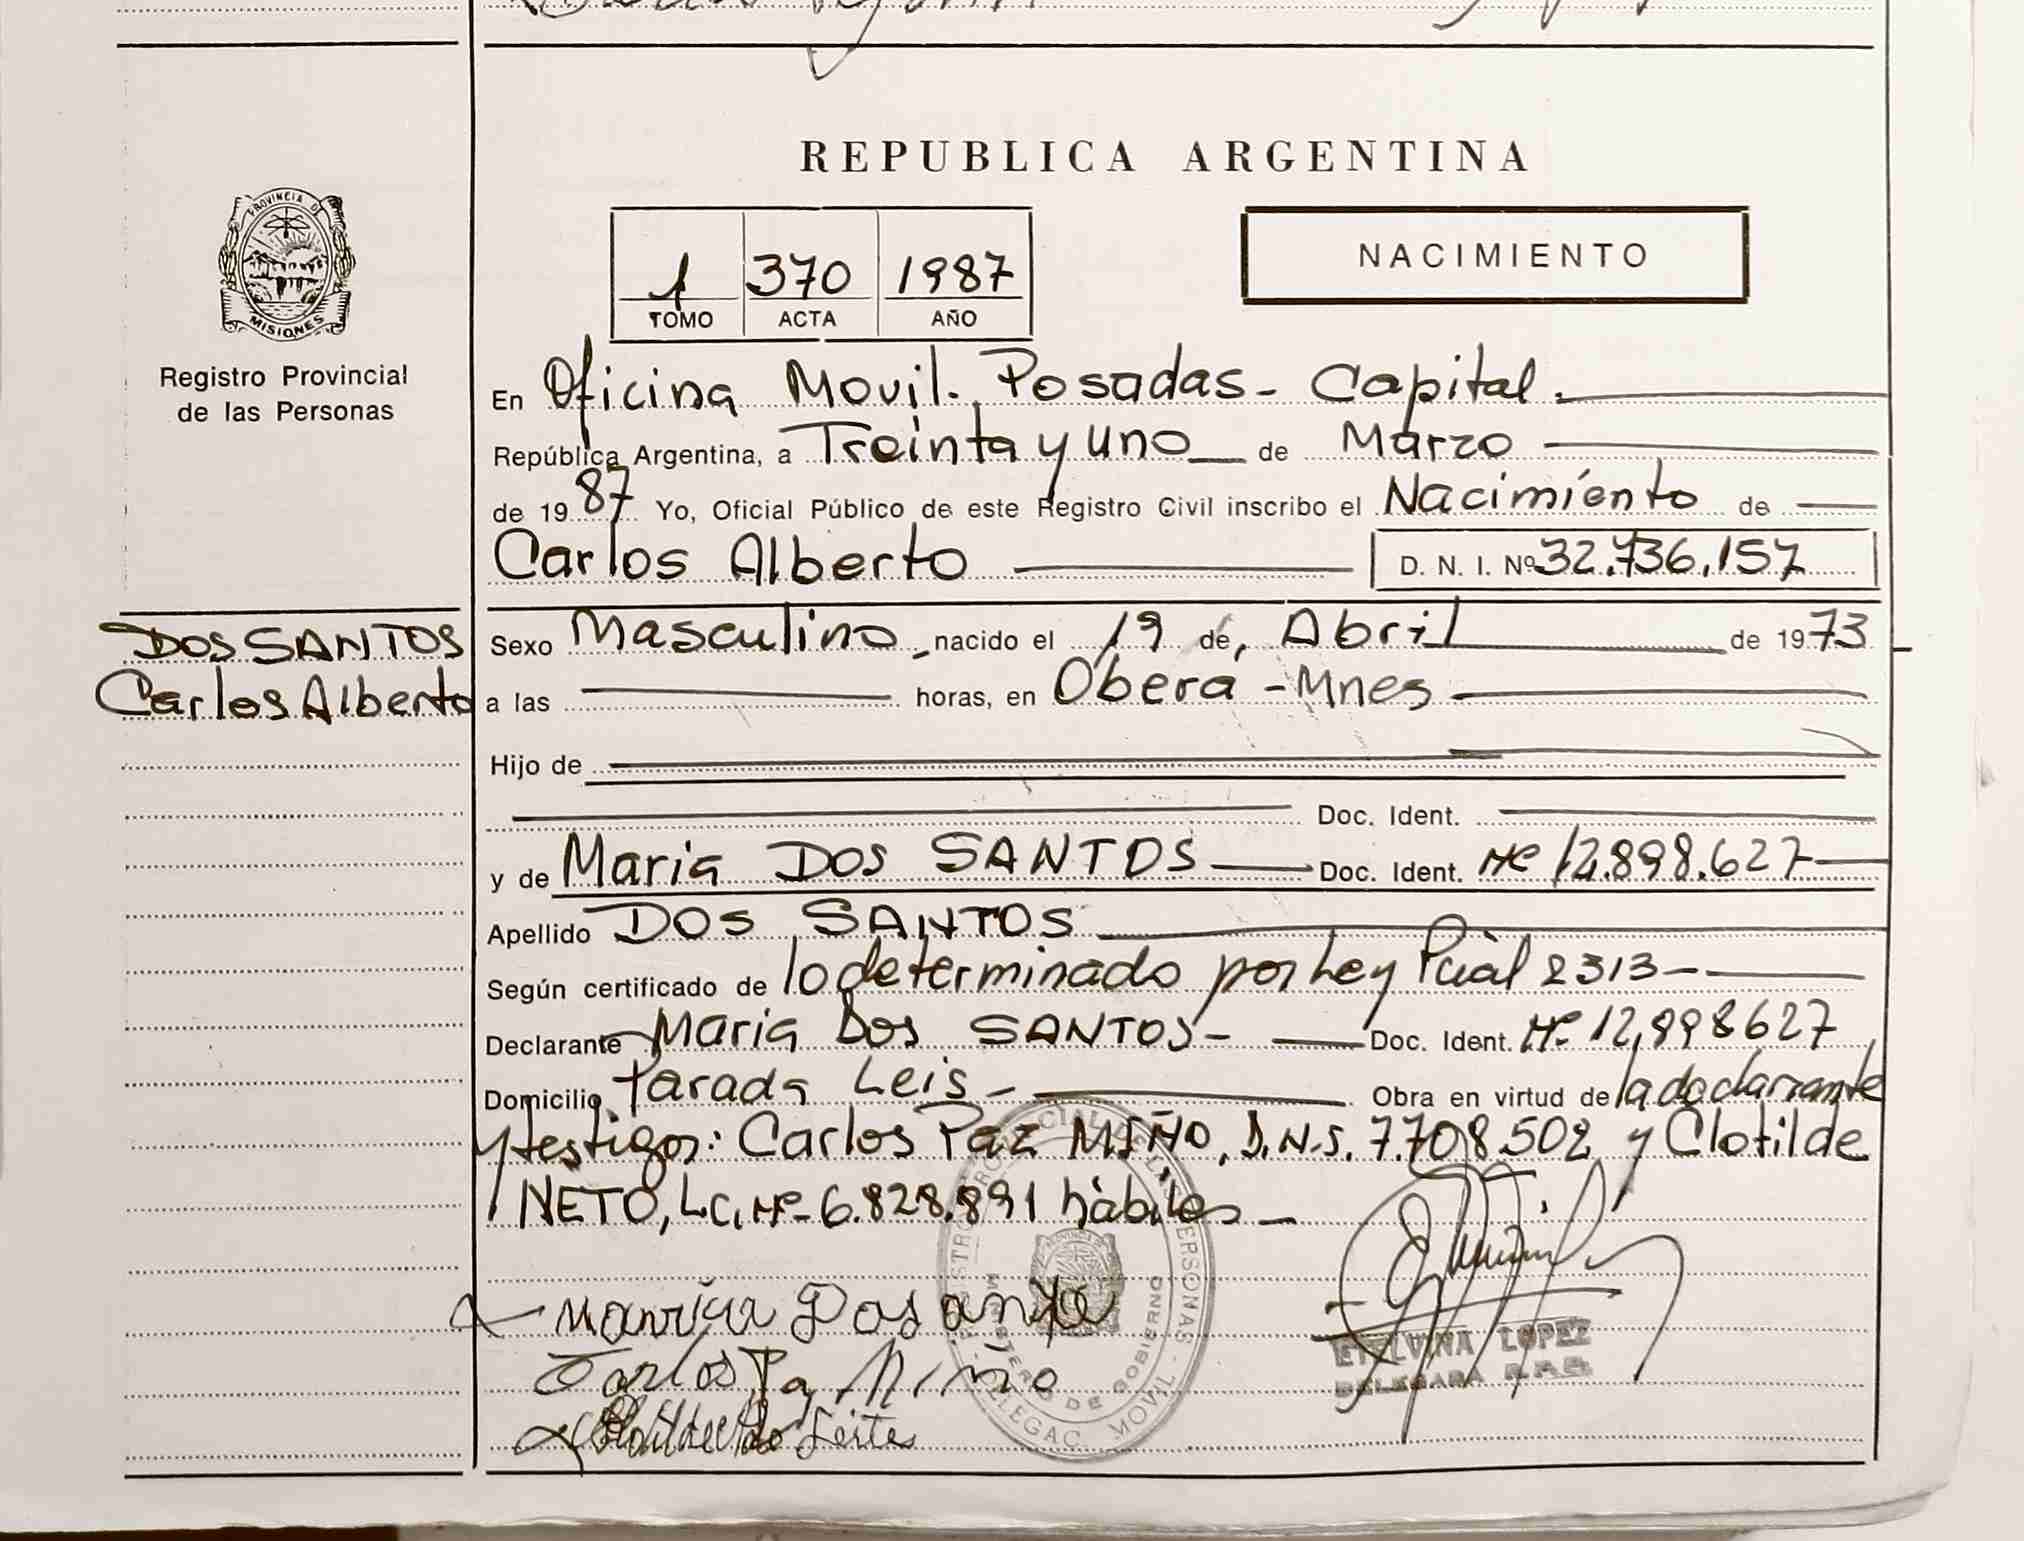 REPUBLICA ARGENTINA
PROVINCIA DE
MISIONES
Registro Provincial
de las Personas
1 370 1987
TOMO ACTA AÑO
NACIMIENTO
En Oficina Movil. Posadas - Capital.
República Argentina, a Treinta y uno de Marzo
de 1987 Yo, Oficial Público de este Registro Civil inscribo el Nacimiento de
Carlos Alberto D. N. I. Nº 32.736.157
DOS SANTOS
Carlos Alberto
Sexo Masculino, nacido el 19 de, Abril de 1973
a las horas, en Oberá - Mnes
Hijo de
Doc. Ident.
y de Maria DOS SANTOS Doc. Ident. Nº 12.898.627
Apellido DOS SANTOS
Según certificado de lo determinado por Ley Pcial 2313-
Declarante Maria Dos SANTOS - Doc. Ident. Nº 12.898627
Domicilio Parada Leis - Obra en virtud de la declarante
y testigos: Carlos Paz MIÑO, D.N.I. 7.708.502 y Clotilde
NETO, L.C. Nº 6.828.891 hábiles -
Carlos Pa Miño
Leites
ETELVINA LOPEZ
DELEGADA R.P.P.
MINISTERIO DE GOBIERNO
DELEGAC. MOVIL